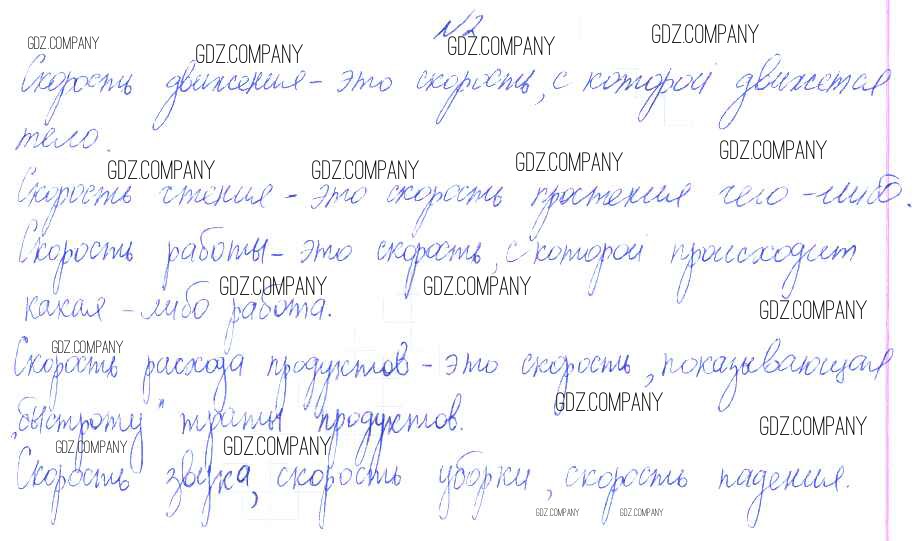 №2
GDZ.COMPANY GDZ.COMPANY GDZ.COMPANY GDZ.COMPANY
Скорость движения - это скорость, с которой движется
тело.
GDZ.COMPANY GDZ.COMPANY GDZ.COMPANY GDZ.COMPANY
Скорость чтения - это скорость прочтения чего-либо.
Скорость работы - это скорость, с которой происходит
GDZ.COMPANY GDZ.COMPANY
какая-либо работа.
GDZ.COMPANY
GDZ.COMPANY
Скорость расхода продуктов - это скорость, показывающая
GDZ.COMPANY
„быстроту" траты продуктов.
GDZ.COMPANY
GDZ.COMPANY GDZ.COMPANY
Скорость звука, скорость уборки, скорость падения.
GDZ.COMPANY GDZ.COMPANY